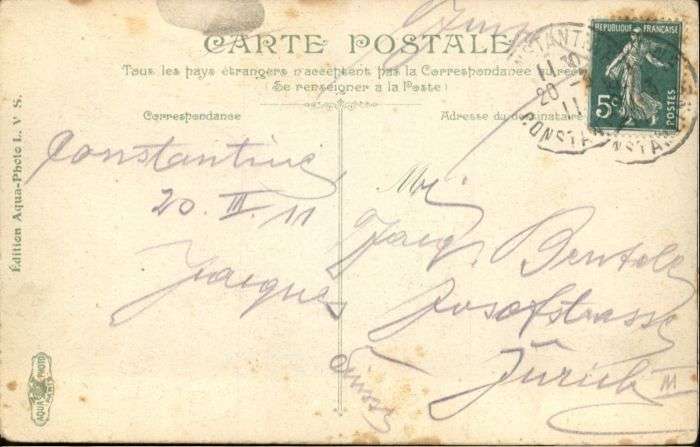 CARTE POSTALE
Tous les pays étrangers n'acceptent pas la Correspondance au recto
(Se renseigner a la Poste)
Correspondance
Adresse du destinataire
Constantine
20. III. 11
Jacques
Mr
Jacq.
Josefstrasse
Zürich III
Suisse
Édition Aqua-Photo L. V. S.
AQUA PHOTO
PARIS
REPUBLIQUE FRANÇAISE
5c
POSTES
CONSTANTINE
11
20
11
CONSTANTINE